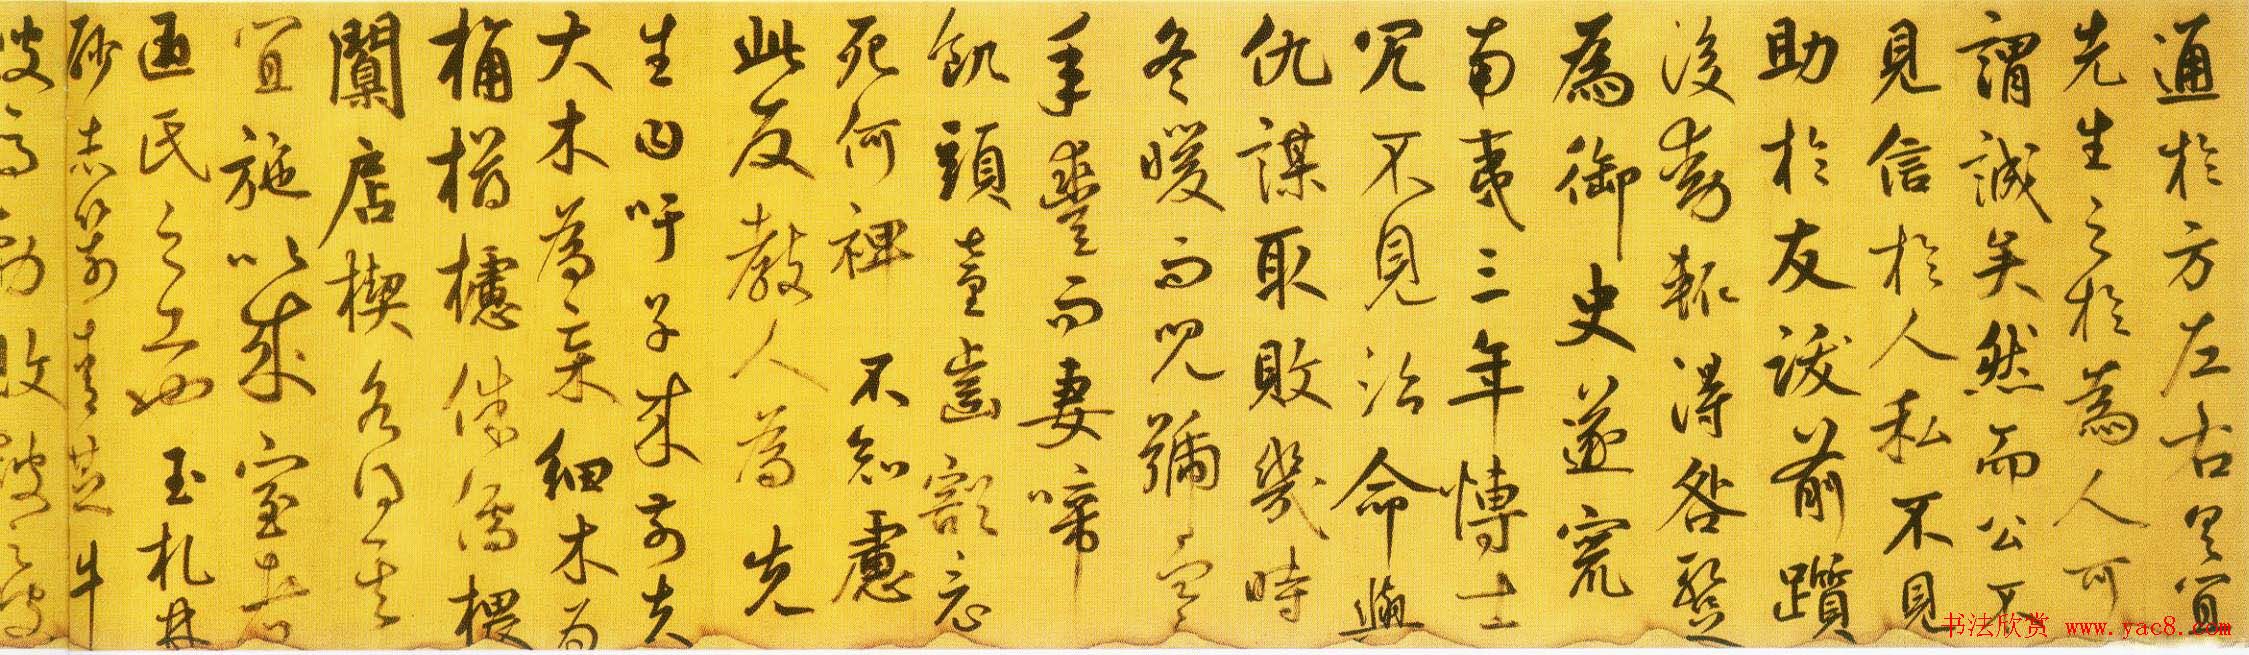 通於方左右具宜
先生之於為人可
謂誠矣然而公不
見信於人私不見
助於友跋前躓
後動輒得咎暫
為御史遂竄
南夷三年博士
冗不見治命與
仇謀取敗幾時
冬暖而兒號寒
年豐而妻啼
飢頭童齒豁竟
死何裨不知慮
此反教人為先
生曰吁子來前夫
大木為杗細木為
桷欂櫨侏儒椳
闑店楔各得其
宜施以成室者
匠氏之工也玉札丹
砂赤箭青芝牛
溲馬勃敗鼓之皮
书法欣赏 www.yac8.com